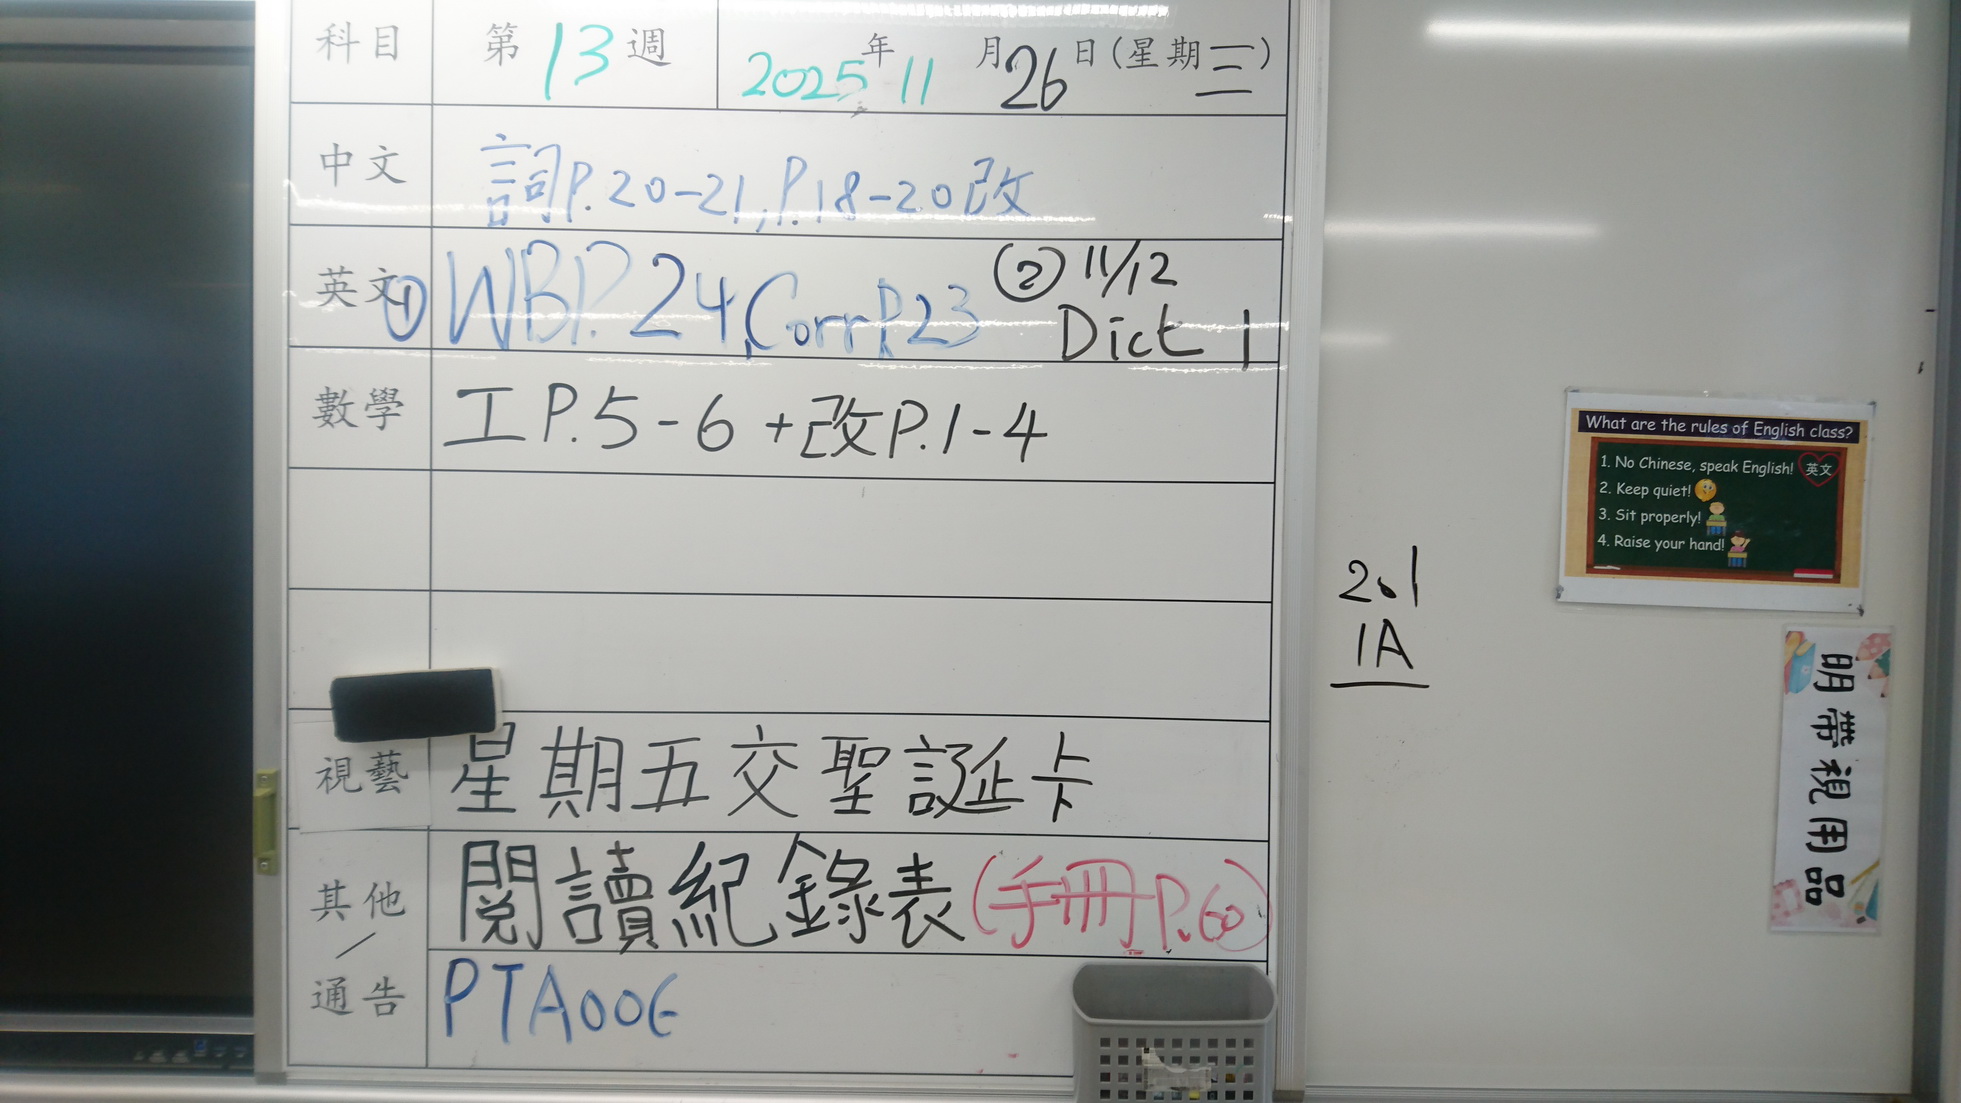 科目 第13週 2025年11月26日(星期三)
中文 詞P.20-21,P.18-20改
英文 ①WBP.24,Corr P.23 ②11/12
Dict 1
數學 工P.5-6+改P.1-4
視藝 星期五交聖誕卡
其他/通告 閱讀紀錄表(手冊P.60)
PTA006
2.1
1A
What are the rules of English class?
1. No Chinese, speak English! 英文
2. Keep quiet!
3. Sit properly!
4. Raise your hand!
明帶視用品